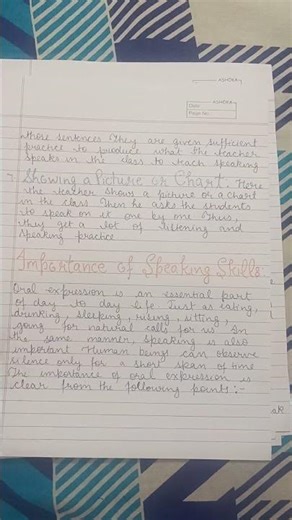 ASHOKA
ASHOKA
Date
Page No.
those sentences They are given sufficient
practice to produce what the teacher
speaks in the class to teach speaking
Showing a Picture or Chart. Here
the teacher shows a picture or a chart
in the class Then he asks the students
to speak on it one by one Thus,
they get a lot of listening and
speaking practice
Importance of Speaking Skills
Oral expression is an essential part
of day to day life. Just as eating,
drinking, sleeping, rising, sitting,
going for natural calls for us In
the same manner, speaking is also
important Human beings can observe
silence only for a short span of time
The importance of oral expression is
clear from the following points:-